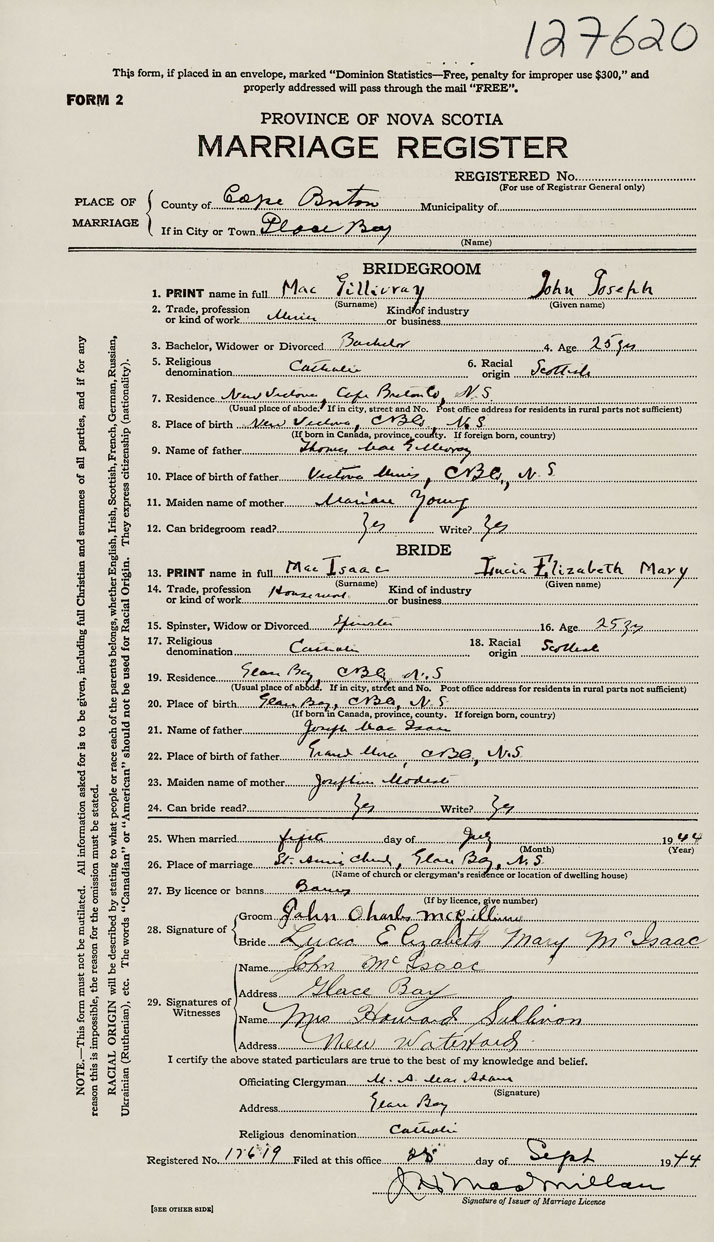 127620
This form, if placed in an envelope, marked "Dominion Statistics—Free, penalty for improper use $300," and
properly addressed will pass through the mail "FREE".
FORM 2
PROVINCE OF NOVA SCOTIA
MARRIAGE REGISTER
REGISTERED No.
(For use of Registrar General only)
PLACE OF MARRIAGE
County of Cape Breton Municipality of
If in City or Town Glace Bay
(Name)
BRIDEGROOM
1. PRINT name in full Mac Gillivray John Joseph
(Surname) (Given name)
2. Trade, profession or kind of work Miner Kind of industry or business
3. Bachelor, Widower or Divorced Bachelor 4. Age 25 yrs
5. Religious denomination Catholic 6. Racial origin Scottish
7. Residence New Victoria, Cape Breton Co, N.S.
(Usual place of abode. If in city, street and No. Post office address for residents in rural parts not sufficient)
8. Place of birth New Victoria, CBCo, N.S
(If born in Canada, province, county. If foreign born, country)
9. Name of father Thomas Mac Gillivray
10. Place of birth of father Victoria Mines, CBCo, N.S.
11. Maiden name of mother Marian Young
12. Can bridegroom read? Yes Write? Yes
BRIDE
13. PRINT name in full Mac Isaac Lucia Elizabeth Mary
(Surname) (Given name)
14. Trade, profession or kind of work Housework Kind of industry or business
15. Spinster, Widow or Divorced Spinster 16. Age 25 yrs
17. Religious denomination Catholic 18. Racial origin Scottish
19. Residence Glace Bay, CBCo, N.S
(Usual place of abode. If in city, street and No. Post office address for residents in rural parts not sufficient)
20. Place of birth Glace Bay, CBCo, N.S
(If born in Canada, province, county. If foreign born, country)
21. Name of father Joseph Mac Isaac
22. Place of birth of father Grand Mira, CBCo, N.S
23. Maiden name of mother Josephine
24. Can bride read? Yes Write? Yes
25. When married fifth day of July 1944
(Month) (Year)
26. Place of marriage St. Anne's Church, Glace Bay, N.S.
(Name of church or clergyman's residence or location of dwelling house)
27. By licence or banns Banns
(If by licence, give number)
28. Signature of
Groom John Charles
Bride Lucia Elizabeth Mary McIsaac
29. Signatures of Witnesses
Name John McIsaac
Address Glace Bay
Name Mrs Howard Sullivan
Address New Waterford
I certify the above stated particulars are true to the best of my knowledge and belief.
Officiating Clergyman M. A. Mac Adam
(Signature)
Address Glace Bay
Religious denomination Catholic
Registered No. 17619 Filed at this office 28 day of Sept 1944
J H MacMillan
Signature of Issuer of Marriage Licence
[SEE OTHER SIDE]
NOTE.—This form must not be mutilated. All information asked for is to be given, including full Christian and surnames of all parties, and if for any
reason this is impossible, the reason for the omission must be stated.
RACIAL ORIGIN will be described by stating to what people or race each of the parents belongs, whether English, Irish, Scottish, French, German, Russian,
Ukrainian (Ruthenian), etc. The words "Canadian" or "American" should not be used for Racial Origin. They express citizenship (nationality).